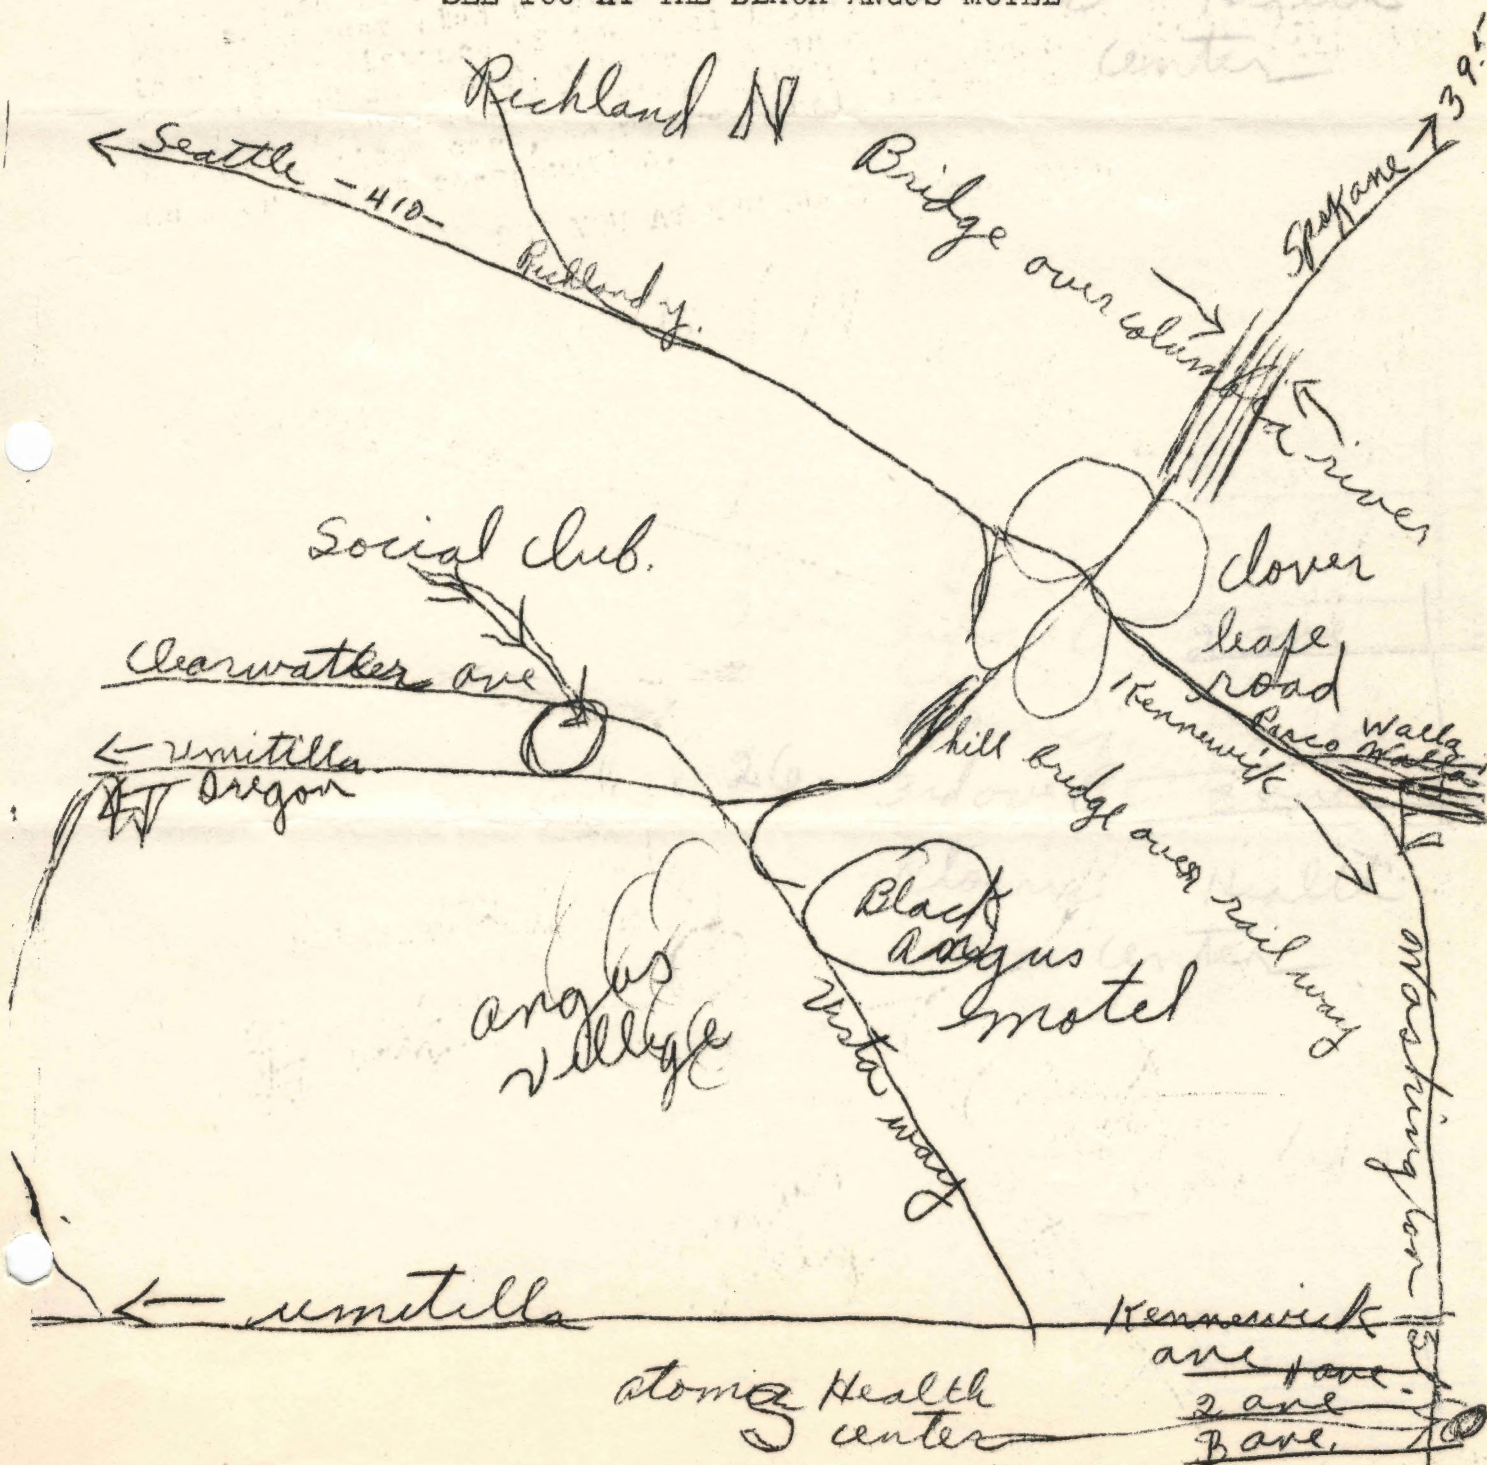 SEE YOU AT THE BLACK ANGUS MOTEL
center
Richland N
395
← Seattle -410-
Spokane →
Bridge over columbia river
Richland y.
Social Club.
clover
leafe
road
Clearwatter ave
← umitilla
Oregon
Kennewick
Pasco
Walla
Walla
hill bridge over rail way
Black
Angus
motel
angus
village
Vista way
Washington
← umitilla
Kennewick
ave
1 ave.
2 ave
3 ave.
atomic Health
center